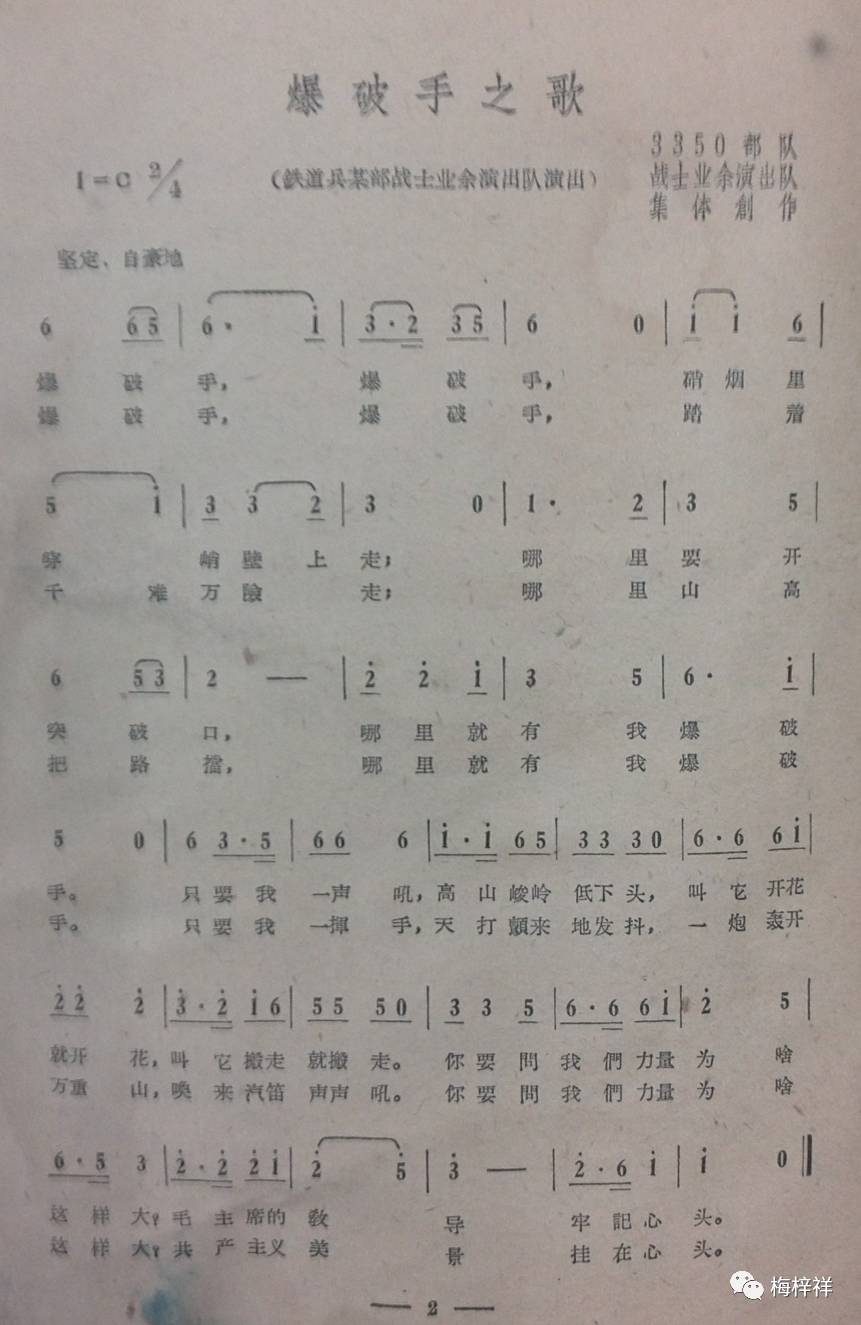 爆破手之歌
3350部队
1=C 2/4 （鉄道兵某部战士业余演出队演出） 战士业余演出队
集体創作
坚定、自豪地
6 6 5 | 6· i | 3·2 3 5 | 6 0 | i i 6 |
爆 破 手， 爆 破 手， 硝 烟 里
爆 破 手， 爆 破 手， 踏 着
5 i | 3 3 2 | 3 0 | 1· 2 | 3 5 |
穿 峭 壁 上 走； 哪 里 要 开
千 难 万 險 走； 哪 里 山 高
6 5 3 | 2 — | 2̇ 2̇ i | 3 5 | 6· i |
突 破 口， 哪 里 就 有 我 爆 破
把 路 擋， 哪 里 就 有 我 爆 破
5 0 | 6 3·5 | 6 6 6 | i·i 6 5 | 3 3 3 0 | 6·6 6 i |
手。 只 要 我 一声 吼，高 山 峻岭 低下 头， 叫 它 开花
手。 只 要 我 一揮 手，天 打 顫来 地发 抖， 一 炮 轰开
2̇ 2̇ 2̇ | 3̇·2̇ i 6 | 5 5 5 0 | 3 3 5 | 6·6 6 i | 2̇ 5 |
就开 花，叫 它 搬走 就搬 走。 你 要 問 我 們 力量 为 啥
万重 山，喚 来 汽笛 声声 吼。 你 要 問 我 們 力量 为 啥
6·5 3 | 2̇·2̇ 2̇ i | 2̇ 5̇ | 3̇ — | 2̇·6 i | i 0 ‖
这 样 大？毛 主 席的 教 导 牢 記 心 头。
这 样 大？共 产 主义 美 景 挂 在 心 头。
— 2 —
梅梓祥